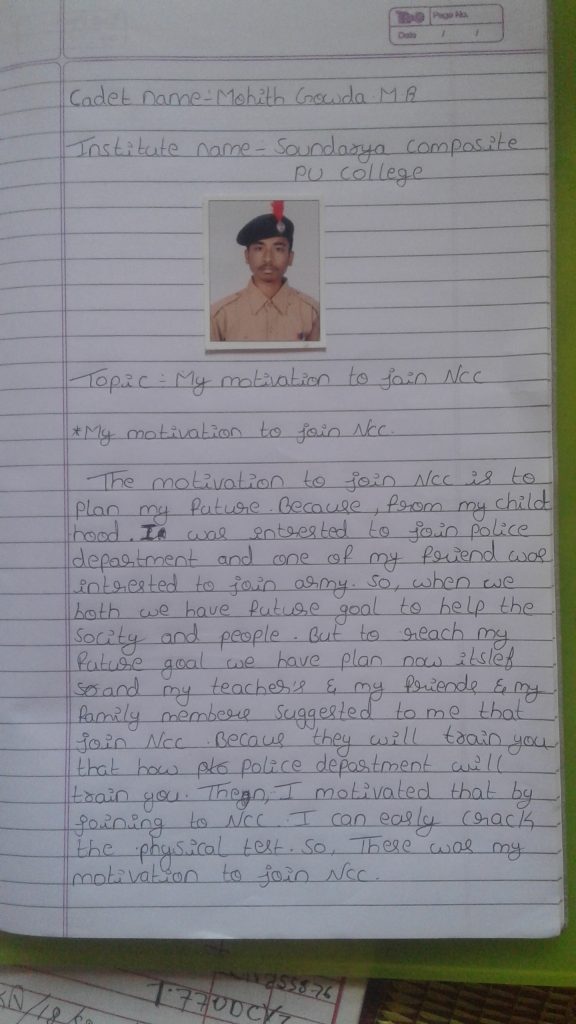 Page No.
Date / /
Cadet name:- Mohith Gowda M R
Institute name - Soundarya composite
PU college
Topic :- My motivation to join Ncc
*My motivation to join Ncc.
The motivation to join Ncc is to
plan my future. Because, from my child
hood. I was intrested to join police
department and one of my friend was
intrested to join army. So, when we
both we have future goal to help the
socity and people. But to reach my
future goal we have plan now itslef
and my teachers & my friends & my
family members suggested to me that
join Ncc. Becaus they will train you
that how police department will
train you. Then, I motivated that by
joining to Ncc. I can early crack
the physical test. So, There was my
motivation to join Ncc.
T.770DCX7